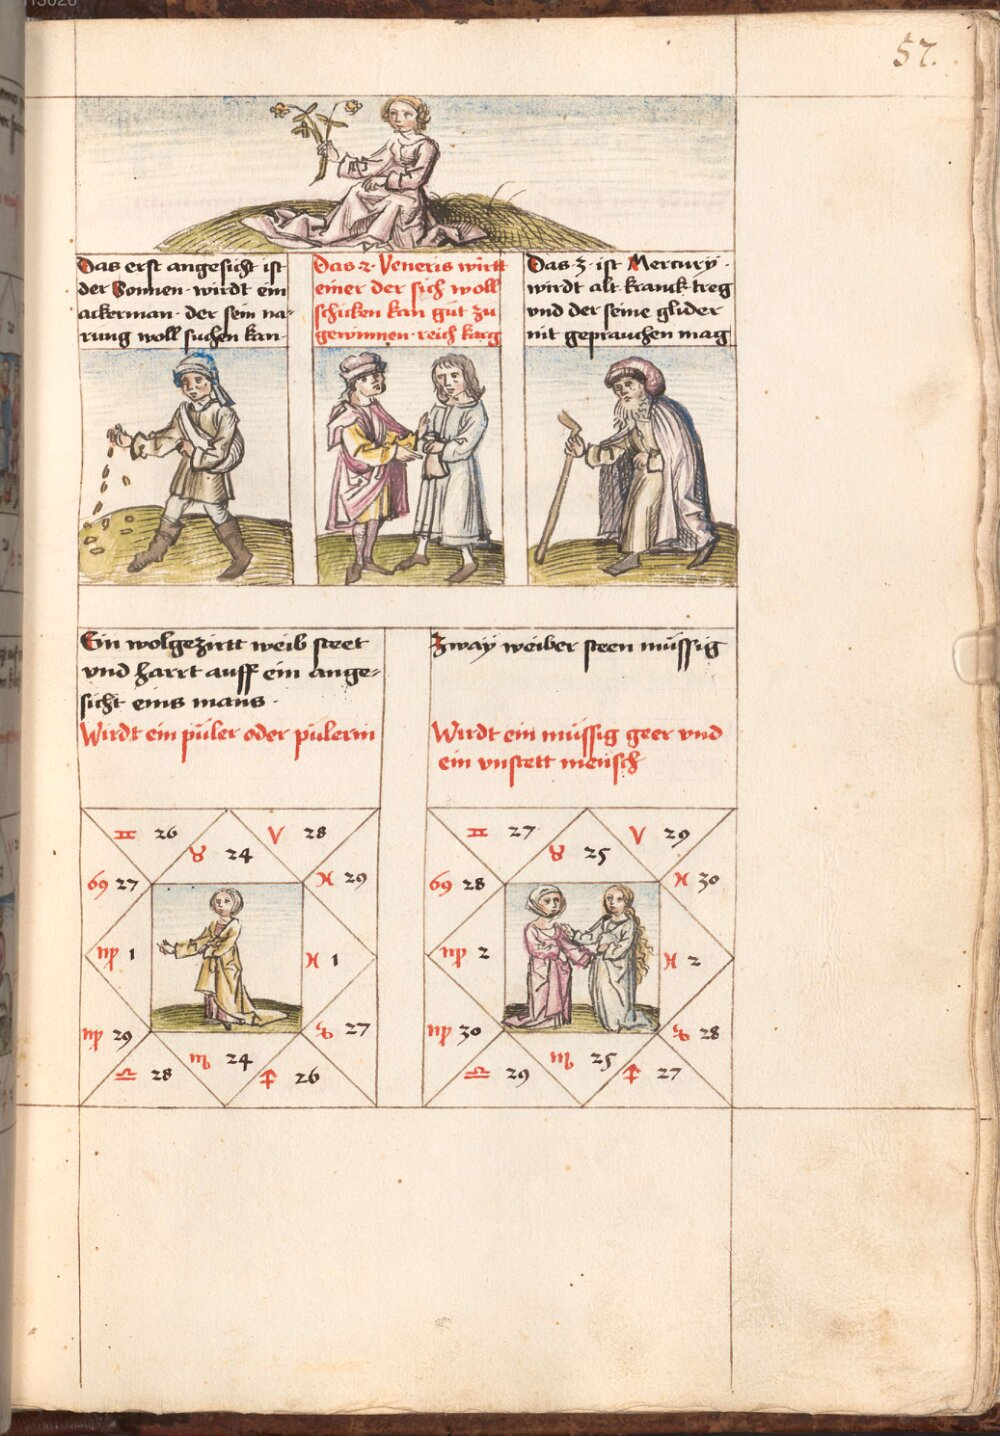 57.
Das erst angesicht ist
der Sonnen · wirdt ein
ackerman · der sein na-
rung woll suchen kan ·
Das · 2 · Veneris wirtt
einer der sich woll
schicken kan güt zu
gewinnen · reich karg
Das · 3 · ist Mercury ·
wirdt alt · kranck treg
vnd der seine glider
nit geprauchen mag
Ein wolgezirtt weib steet
vnd harrt auff ein ange-
sicht eins mans ·
Wirdt ein püler oder pülerin
Zway weiber steen müssig
Wirdt ein müssig geer vnd
ein vnstett mensch
♊ 26
♉ 24
♈ 28
♋ 27
♓ 29
♍ 1
♓ 1
♍ 29
♑ 27
♏ 24
♎ 28
♐ 26
♊ 27
♉ 25
♈ 29
♋ 28
♓ 30
♍ 2
♓ 2
♍ 30
♑ 28
♏ 25
♎ 29
♐ 27